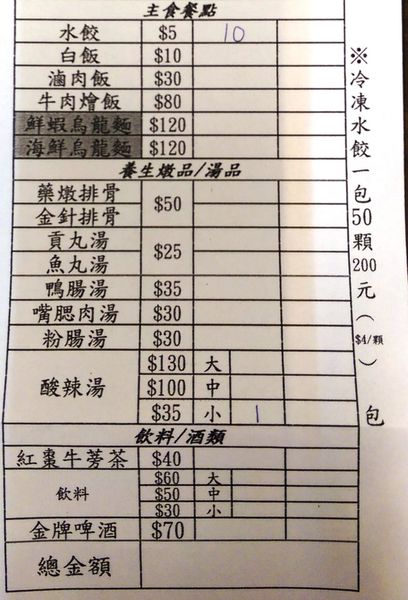 主食餐點
水餃 $5 10
白飯 $10
滷肉飯 $30
牛肉燴飯 $80
鮮蝦烏龍麵 $120
海鮮烏龍麵 $120
養生燉品/湯品
藥燉排骨 $50
金針排骨
貢丸湯 $25
魚丸湯
鴨腸湯 $35
嘴腮肉湯 $30
粉腸湯 $30
酸辣湯 $130 大
$100 中
$35 小 1
飲料/酒類
紅棗牛蒡茶 $40
飲料 $60 大
$50 中
$30 小
金牌啤酒 $70
總金額
※冷凍水餃一包50顆200元($4/顆)
包